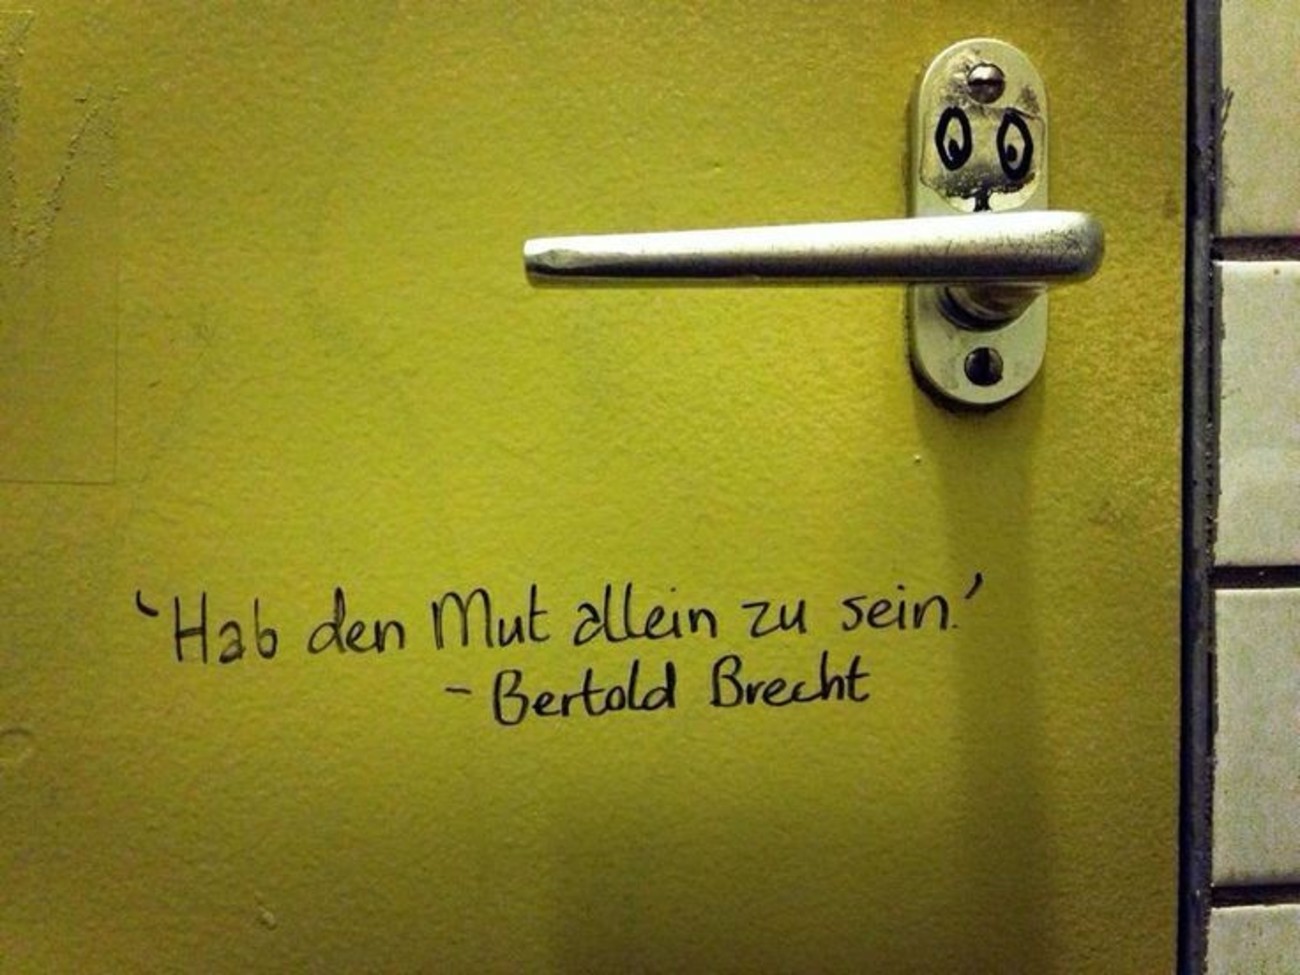 'Hab den Mut allein zu sein.'
- Bertold Brecht